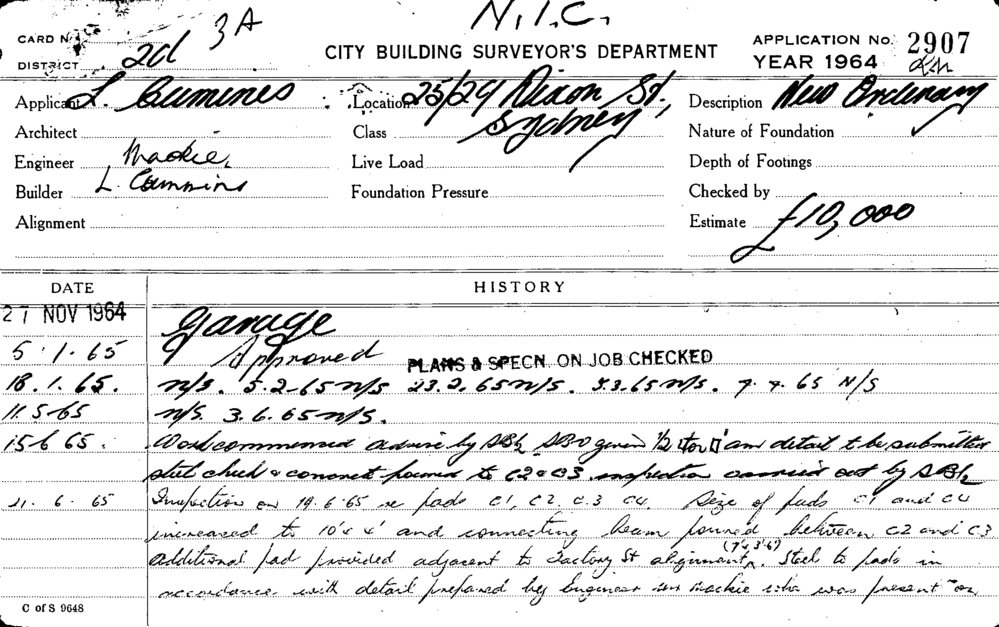 N.I.C.
3A
CARD No.
DISTRICT 2d
CITY BUILDING SURVEYOR'S DEPARTMENT
APPLICATION No. 2907
YEAR 1964
Applicant L. Cumines
Location 25/29 Dixon St., Sydney
Description New Ordinary
Architect
Class
Nature of Foundation
Engineer Mackie,
Live Load
Depth of Footings
Builder L. Cummins
Foundation Pressure
Checked by
Alignment
Estimate £10,000
DATE
HISTORY
27 NOV 1964 Garage
5.1.65 Approved PLANS & SPECN. ON JOB CHECKED
18.1.65. n/s. 5.2.65 n/s 23.2.65 n/s. 3.3.65 n/s. 7.4.65 N/S
11.5.65 n/s. 3.6.65 n/s.
15.6.65. Work commenced advise by given 1/2 detail to be submitted
steel check & concrete poured to C2 & C3 inspection carried out by
21.6.65 Inspection on 19.6.65 re pads C1, C2, C.3 C4. Size of pads C1 and C4
increased to 10' x 4' and connecting beam poured between C2 and C3
additional pad provided adjacent to Factory St alignment (7' x 3'6"). Steel to pads in
accordance with detail prepared by Engineer Mackie who was present on
C of S 9648